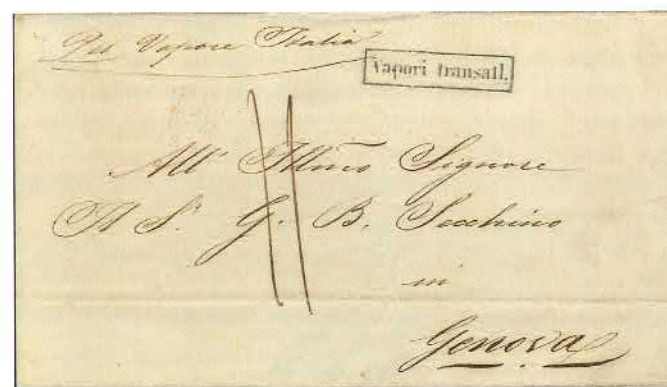 Per Vapore Italia
Vapori transatl.
11
All' Illmo Signore
Il Sr. G. B. Secchino
in
Genova